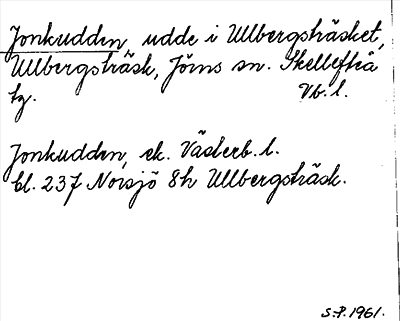 Jonkudden, udde i Ullbergsträsket,
Ullbergsträsk, Jörns sn. Skellefteå
tg. Vb. l.
Jonkudden, ek. Västerb. l.
bl. 237 Norsjö 8h Ullbergsträsk.
S.P. 1961.